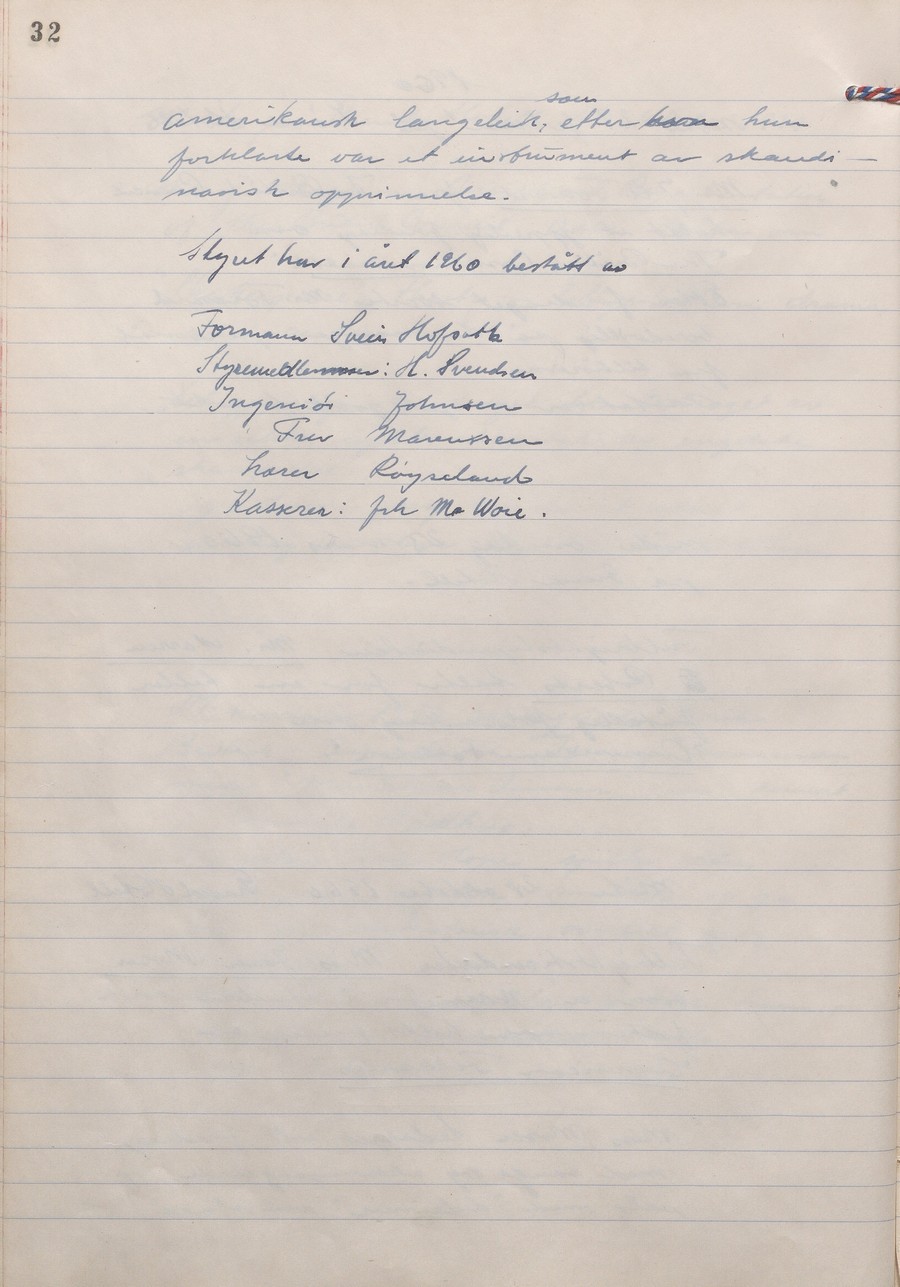 32
amerikansk langeleik, som etter hun
forklarte var et instrument av skandi-
navisk opprinnelse.
Styret har i året 1960 bestått av
Formann Svein Hofseth
Styremedlemmer: H. Svendsen
Ingeniör Johnsen
Fru Marcussen
Lærer Røyseland
Kasserer: frk Mo Woie.